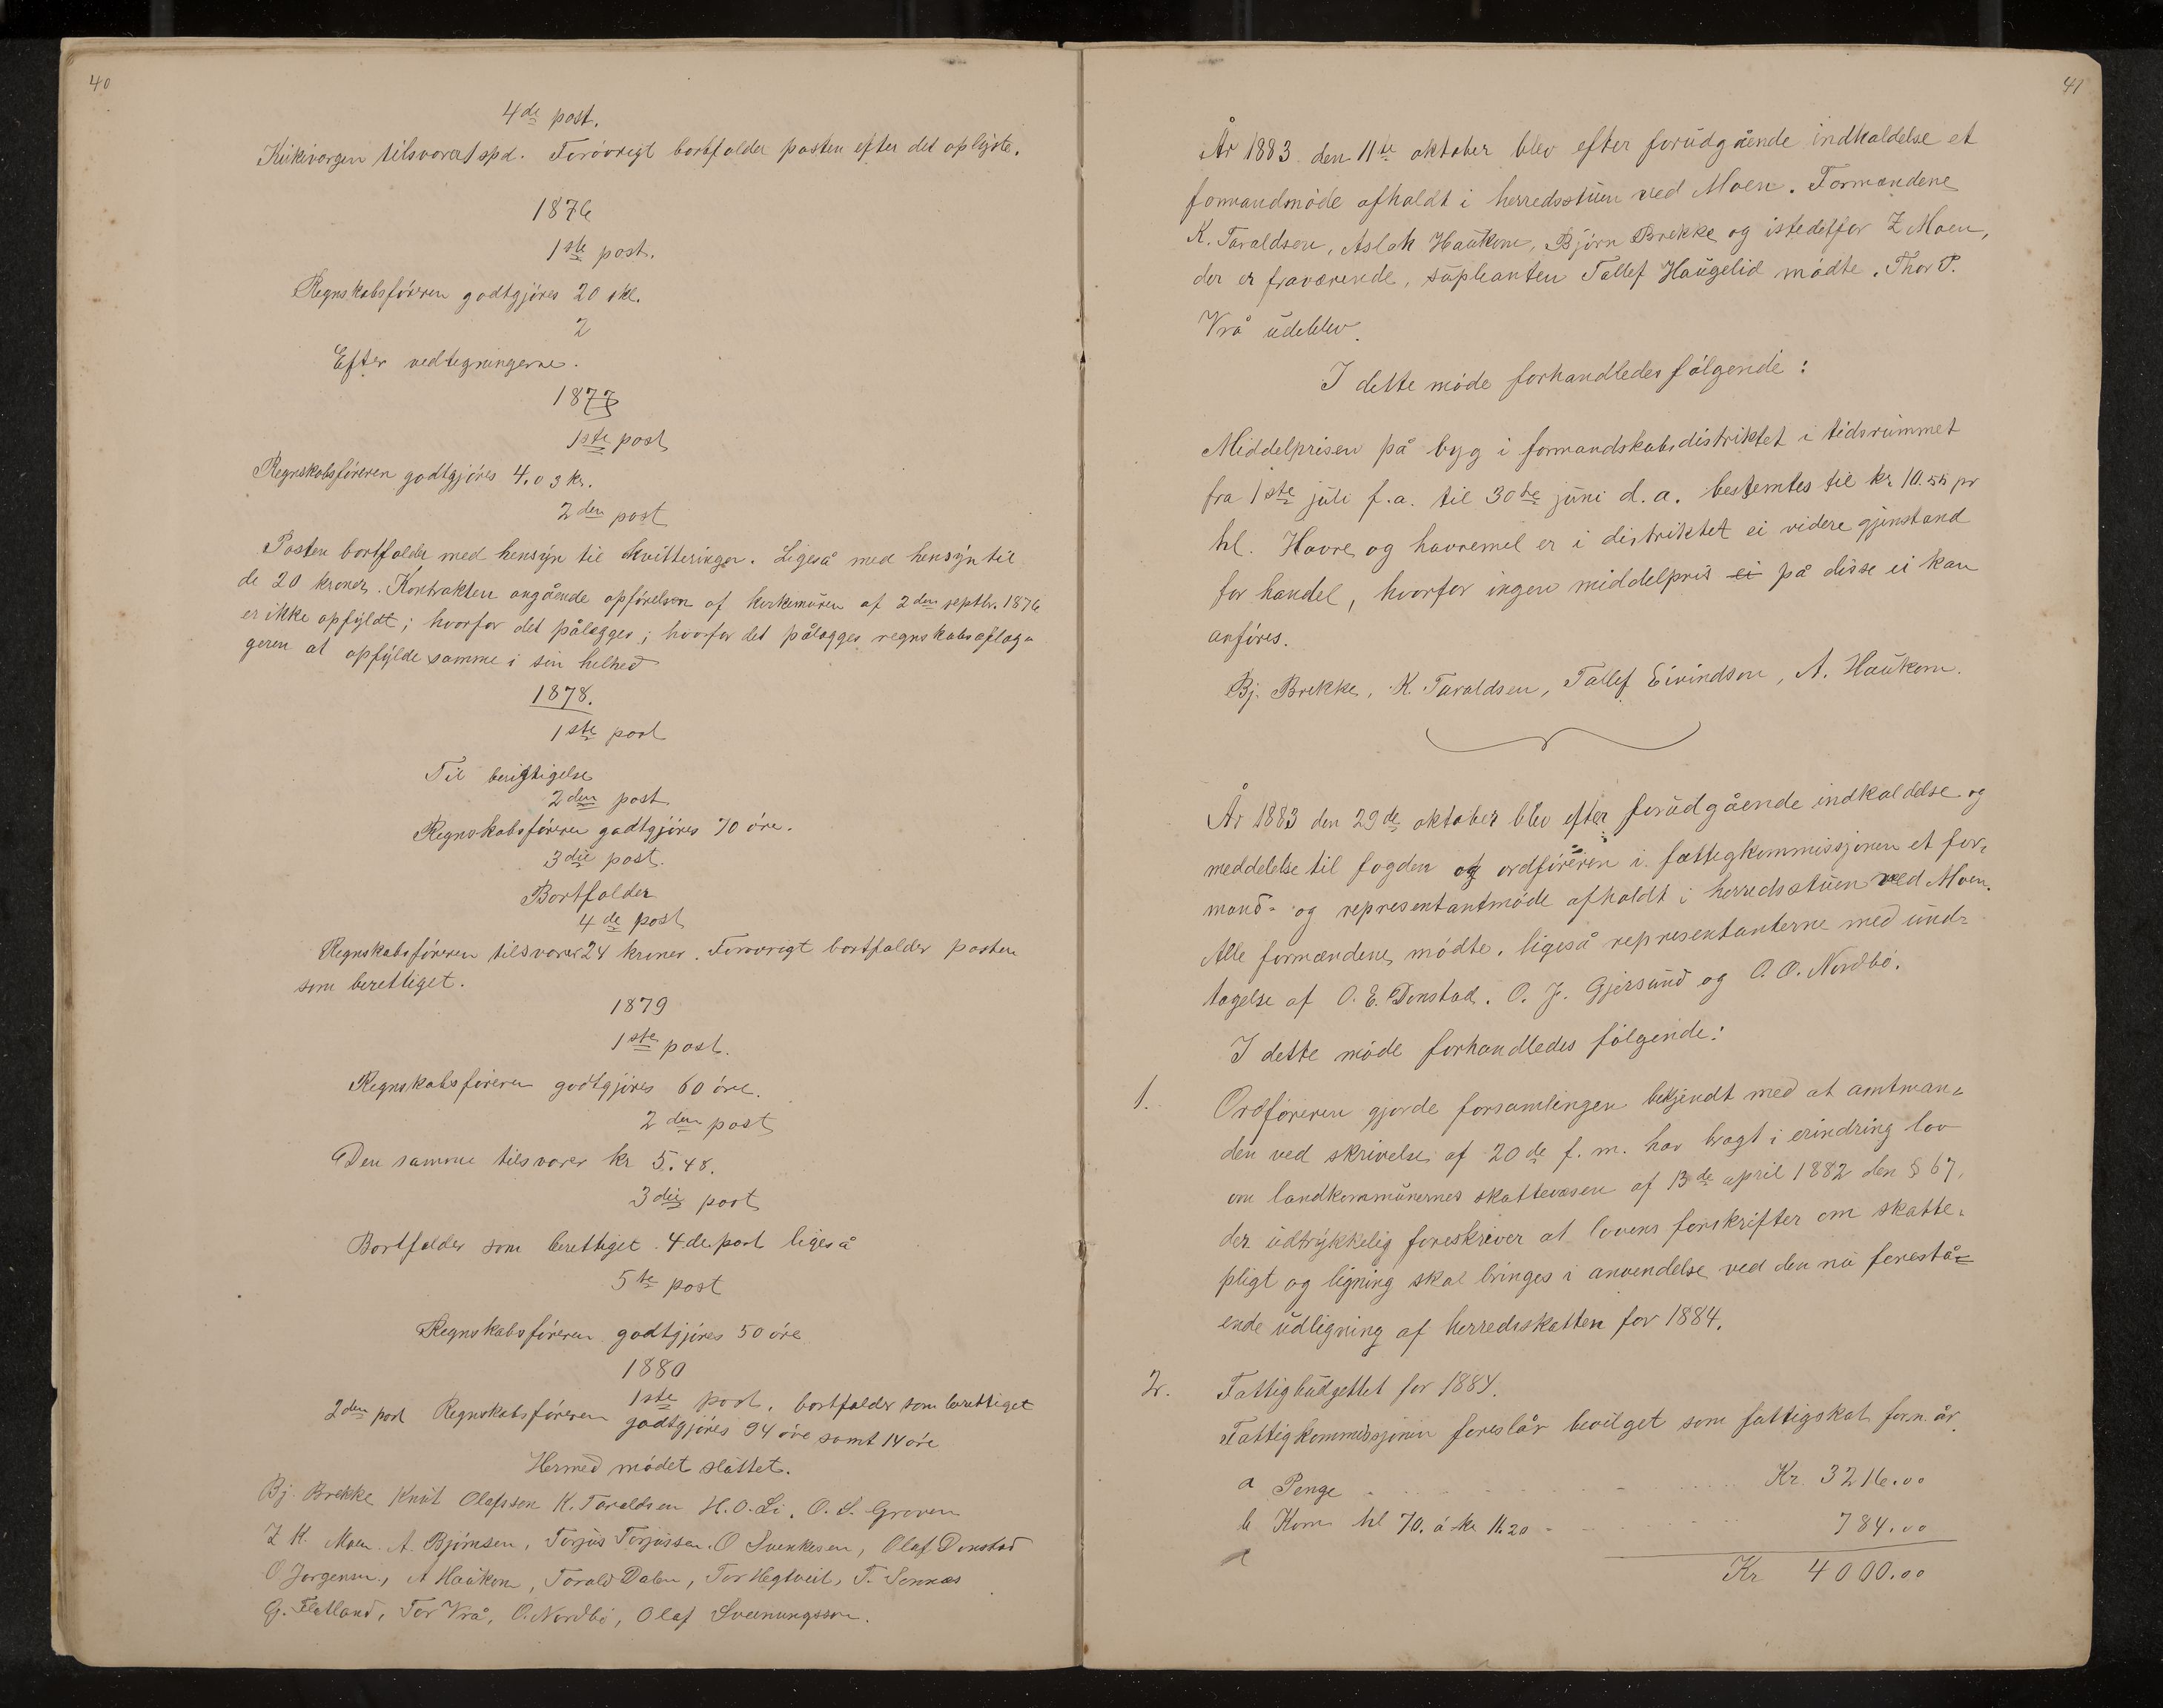 40
4de post.
Kirkevergen tilsvarer 1 spd. Forøvrigt bortfalder posten efter det oplyste.
1876
1ste post.
Regnskabsføreren godtgjøres 20 skl.
2
Efter vedtegningerne.
1877
1ste post
Regnskabsføreren godtgjøres 4.03 kr.
2den post
Posten bortfalder med hensyn til kvitteringer. Ligeså med hensyn til
de 20 kroner. Kontrakten angående opførelsen af kirkemuren af 2den septbr. 1876
er ikke opfyldt; hvorfor det pålegges; hvorfor det pålegges regnskabsaflæg-
geren at opfylde samme i sin helhed
1878.
1ste post
Til berigtigelse
2den post.
Regnskabsføreren godtgjøres 70 øre.
3die post.
Bortfalder
4de post
Regnskabsføreren tilsvarer 24 kroner. Forøvrigt bortfalder posten
som berettiget.
1879
1ste post.
Regnskabsføreren godtgjøres 60 øre.
2den post
Den samme tilsvarer kr 5.48.
3die post
Bortfalder som berettiget. 4de post ligeså
5te post
Regnskabsføreren godtgjøres 50 øre
1880
1ste post, bortfalder som berettiget
2den post Regnskabsføreren godtgjøres 94 øre samt 14 øre
Hermed mødet sluttet.
Bj. Brekke Knut Olafsson K. Taraldsen H. O. Li. O. S. Groven
Z K. Moen. A. Bjørnsen, Torjus Torjussen. O Svenkesen, Olaf Donstad
O Jørgensen, A Haukom, Torald Dalen, Tor Hegtveit, T. Sønnæs
G. Flatland, Tor Vrå, O. Nordbø, Olaf Sveinungsson.
41
År 1883 den 11te oktober blev efter forudgående indkaldelse et
formandmøde afholdt i herredsstuen ved Moen. Formændene
K. Taraldsen, Aslak Haukom, Bjørn Brekke og istedetfor Z Moen,
der er fraværende, supleanten Tallef Haugelid mødte. Thor P.
Vrå udeblev.
I dette møde forhandledes følgende:
Middelprisen på byg i formandskabsdistriktet i tidsrummet
fra 1ste juli f.a. til 30te juni d.a. bestemtes til kr 10.55 pr
hl. Havre og havremel er i distriktet ei videre gjenstand
for handel, hvorfor ingen middelpris ei på disse ei kan
anføres.
Bj. Brekke, K. Taraldsen, Tallef Eivindson, A. Haukom.
År 1883 den 29de oktober blev efter forudgående indkaldelse og
meddelelse til fogden og ordføreren i fattigkommissjonen et for-
mand- og representantmøde afholdt i herredsstuen ved Moen.
Alle formændene mødte, ligeså representanterne med und-
tagelse af O. E. Donstad, O. J. Gjersund og O. O. Nordbø.
I dette møde forhandledes følgende:
1. Ordføreren gjorde forsamlingen bekjendt med at amtman-
den ved skrivelse af 20de f. m. har bragt i erindring lov
om landkommunernes skattevæsen af 13de april 1882 den § 67,
der udtrykkelig foreskriver at lovens forskrifter om skatte-
pligt og ligning skal bringes i anvendelse ved den nu forestå-
ende udligning af herredsskatten for 1884.
2. Fattigbudgettet for 1884.
Fattigkommissjonen foreslår bevilget som fattigskat for n. år
a Penge Kr. 3216.00
b Korn hl 70. á kr 11.20 - 784.00
Kr 4000.00